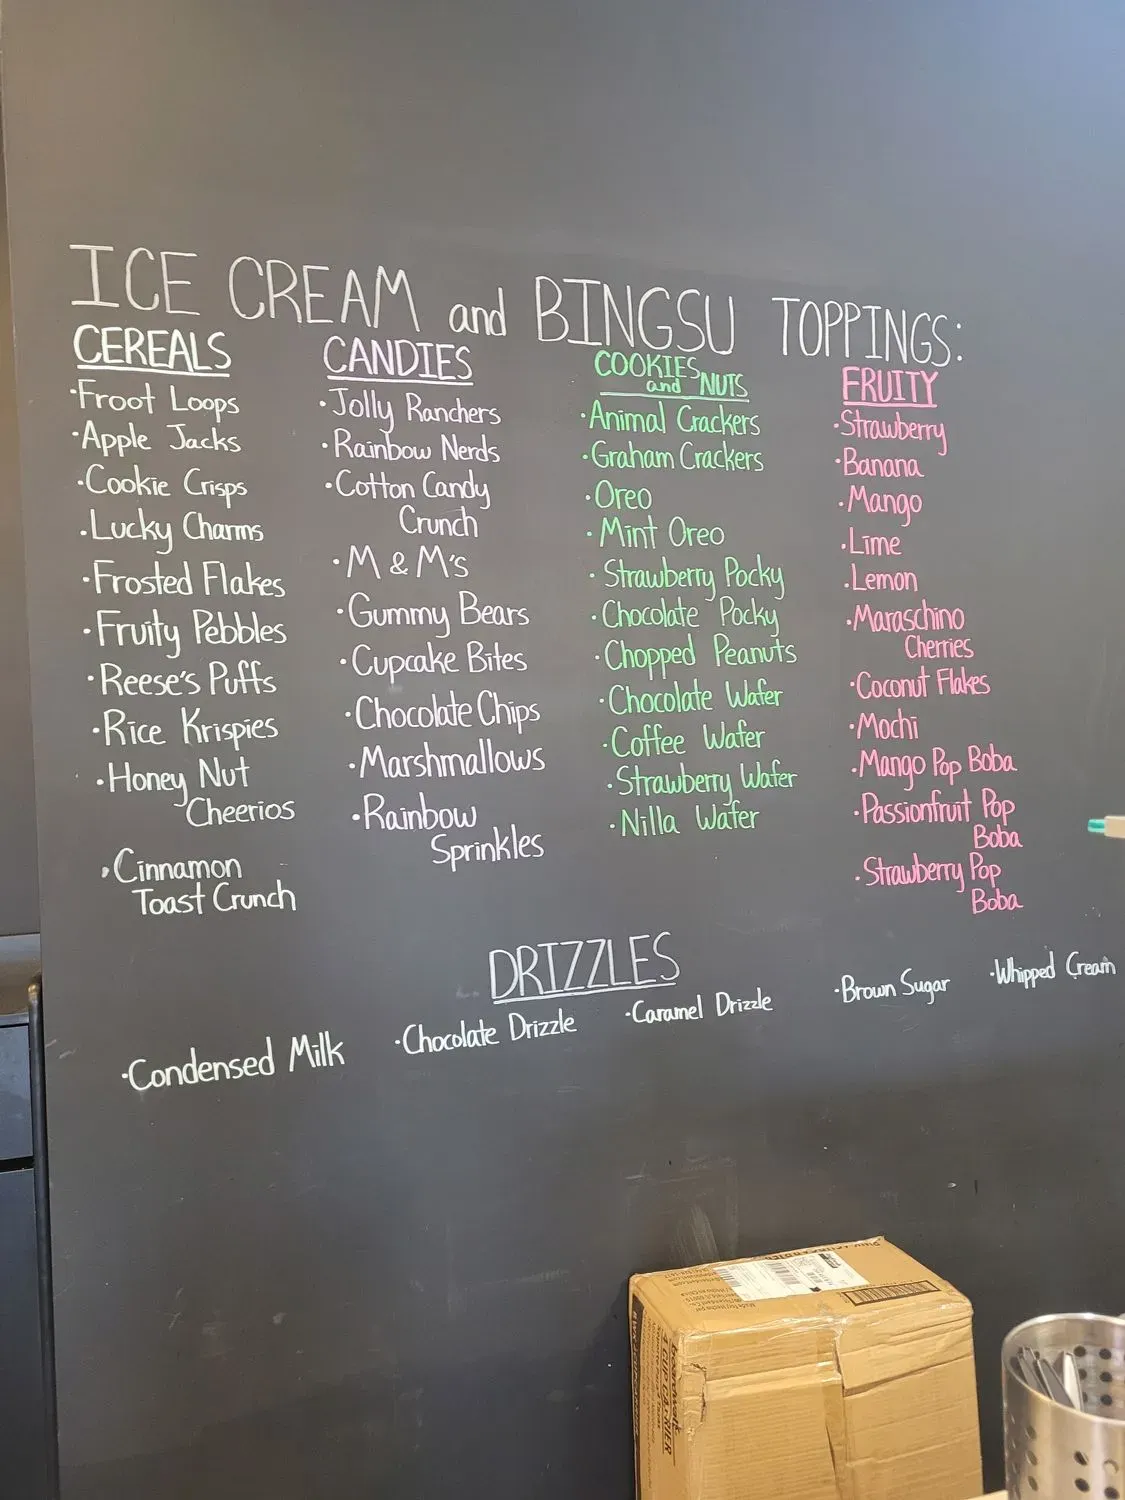 ICE CREAM and BINGSU TOPPINGS:
CEREALS
·Froot Loops
·Apple Jacks
·Cookie Crisps
·Lucky Charms
·Frosted Flakes
·Fruity Pebbles
·Reese's Puffs
·Rice Krispies
·Honey Nut
Cheerios
·Cinnamon
Toast Crunch
CANDIES
·Jolly Ranchers
·Rainbow Nerds
·Cotton Candy
Crunch
·M & M's
·Gummy Bears
·Cupcake Bites
·Chocolate Chips
·Marshmallows
·Rainbow
Sprinkles
COOKIES
and NUTS
·Animal Crackers
·Graham Crackers
·Oreo
·Mint Oreo
·Strawberry Pocky
·Chocolate Pocky
·Chopped Peanuts
·Chocolate Wafer
·Coffee Wafer
·Strawberry Wafer
·Nilla Wafer
FRUITY
·Strawberry
·Banana
·Mango
·Lime
·Lemon
·Maraschino
Cherries
·Coconut Flakes
·Mochi
·Mango Pop Boba
·Passionfruit Pop
Boba
·Strawberry Pop
Boba
DRIZZLES
·Condensed Milk
·Chocolate Drizzle
·Caramel Drizzle
·Brown Sugar
·Whipped Cream
4 CUP CARRIER